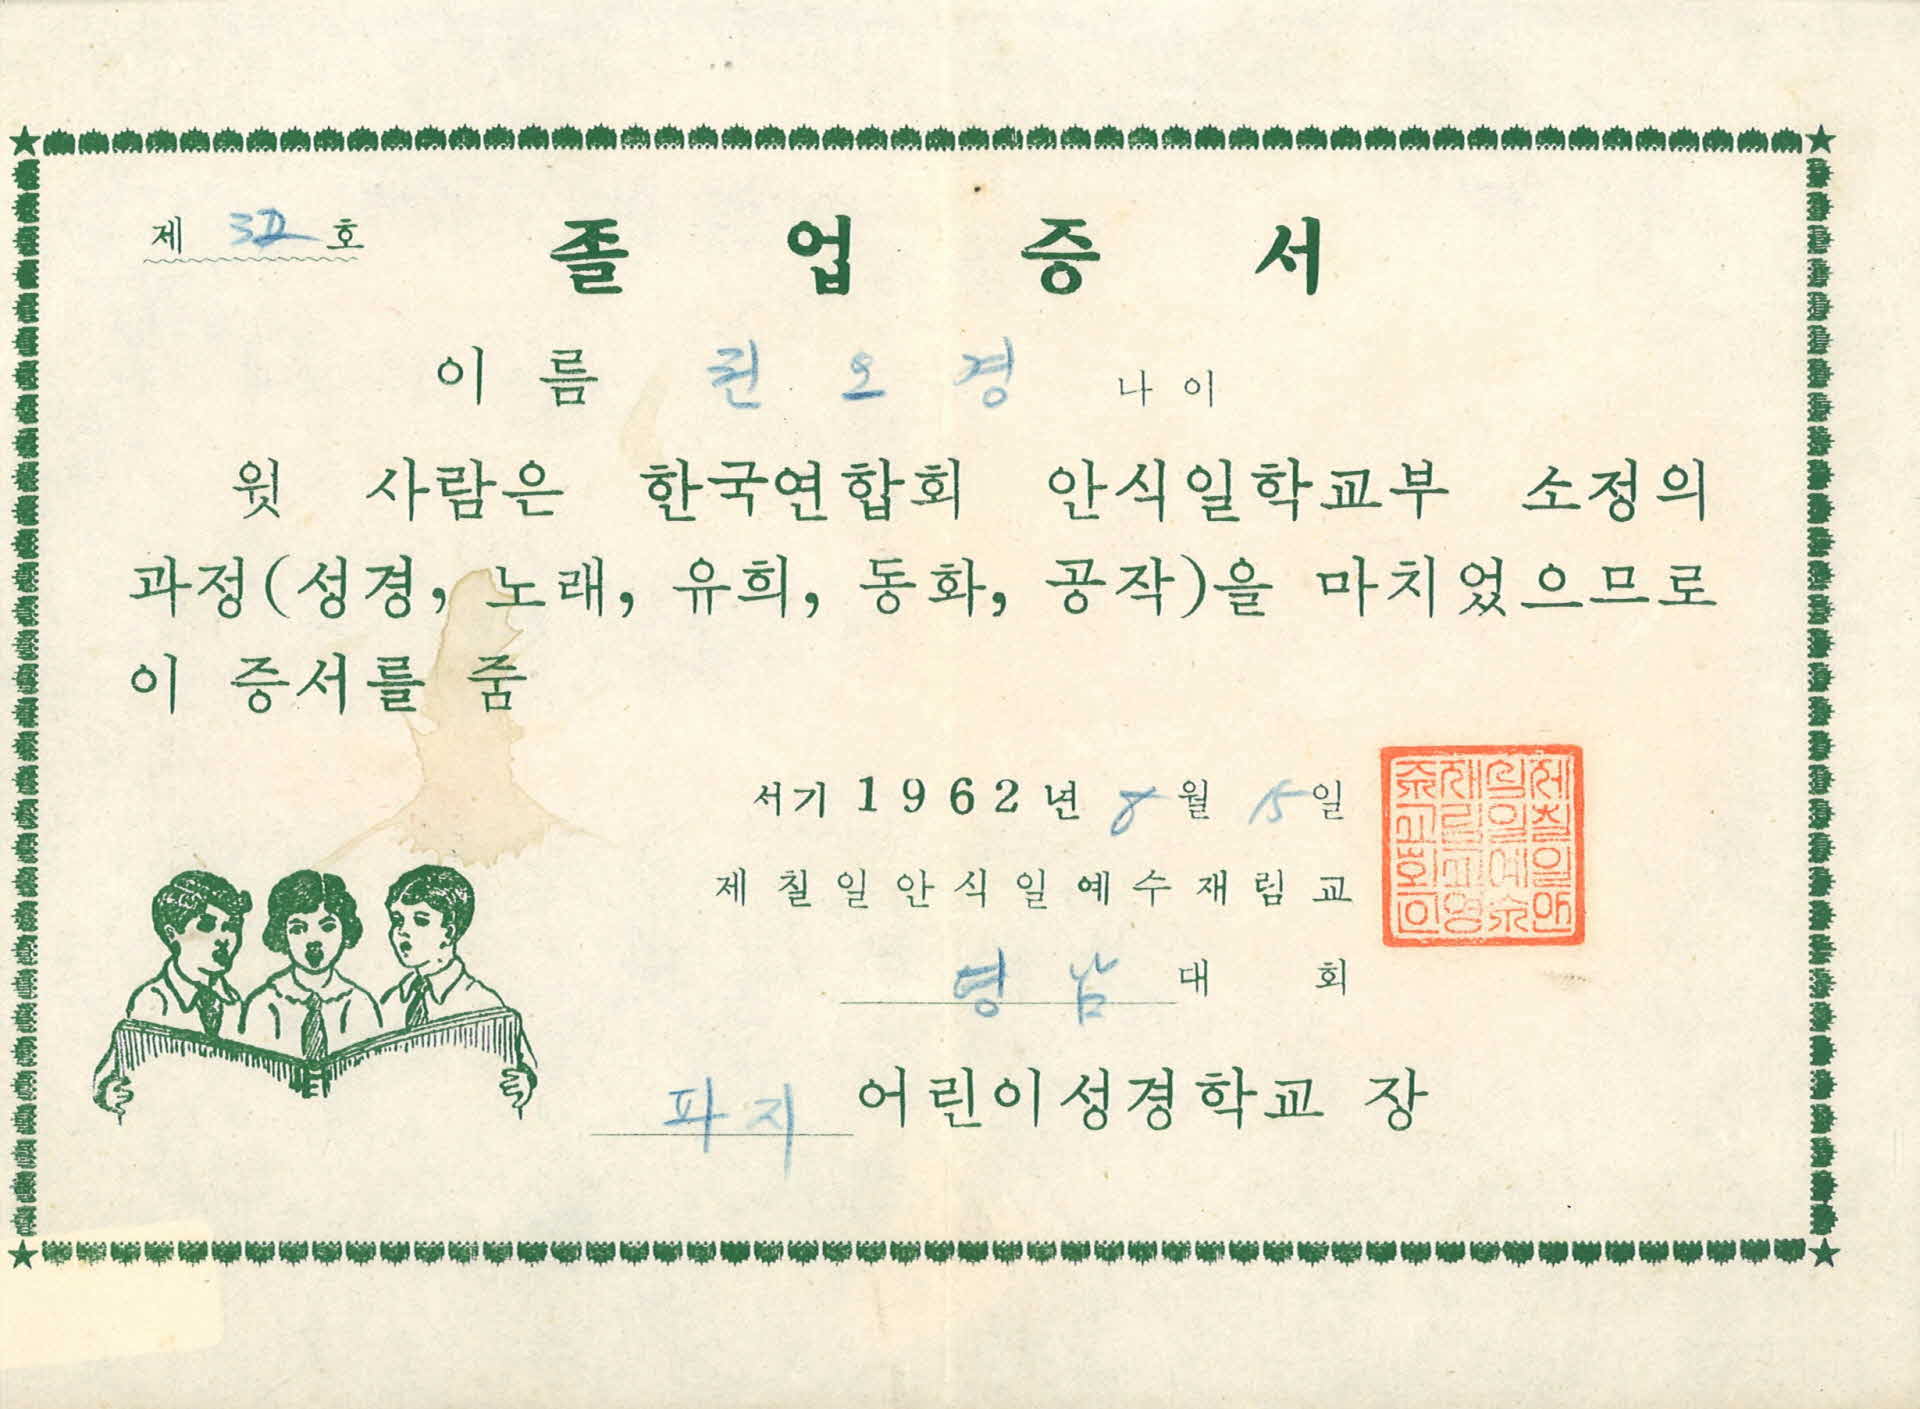 제 32 호
졸업증서
이름 권오경 나이
윗 사람은 한국연합회 안식일학교부 소정의
과정(성경, 노래, 유희, 동화, 공작)을 마치었으므로
이 증서를 줌
서기 1962년 8월 15일
제칠일안식일예수재림교
영남대회
파지 어린이성경학교 장